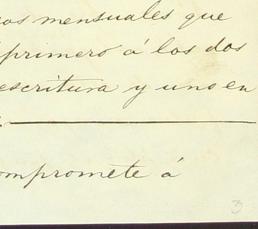 mensuales que
primero á los dos
escritura y uno en
compromete á
3